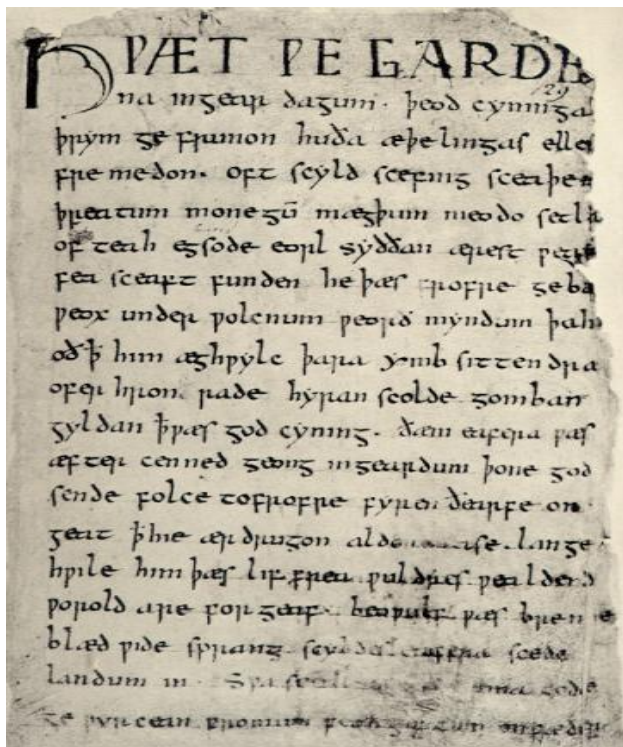 HǷÆT ǷE GARDE
na ingear dagum. þeod cyninga
þrym ge frunon huða æþelingas elle
fre medon. oft scyld scefing sceaþe
þreatum monegū mægþum meodo setla
of teah egsode eorl syððan ærest ƿear
fea sceaft funden he þæs frofre geba
ƿeox under ƿolcnum ƿeorð myndum þah
oð ꝥ him æghƿylc þara ymb sittendra
ofer hron rade hyran scolde gomban
gyldan ꝥ ƿæs god cyning. ðæm eafera ƿæs
æfter cenned geong ingeardum þone god
sende folce tofrofre fyren ðearfe on
geat ꝥ hie ær drugon lange
hƿile him þæs lif frea ƿuldres ƿealdend
ƿorold are for geaf. beoƿulf ƿæs breme
blæd ƿide sprang scyldes eafera scede
landum in. Sƿa sceal guma gode
ge ƿyrcean fromum feoh giftum on fæder